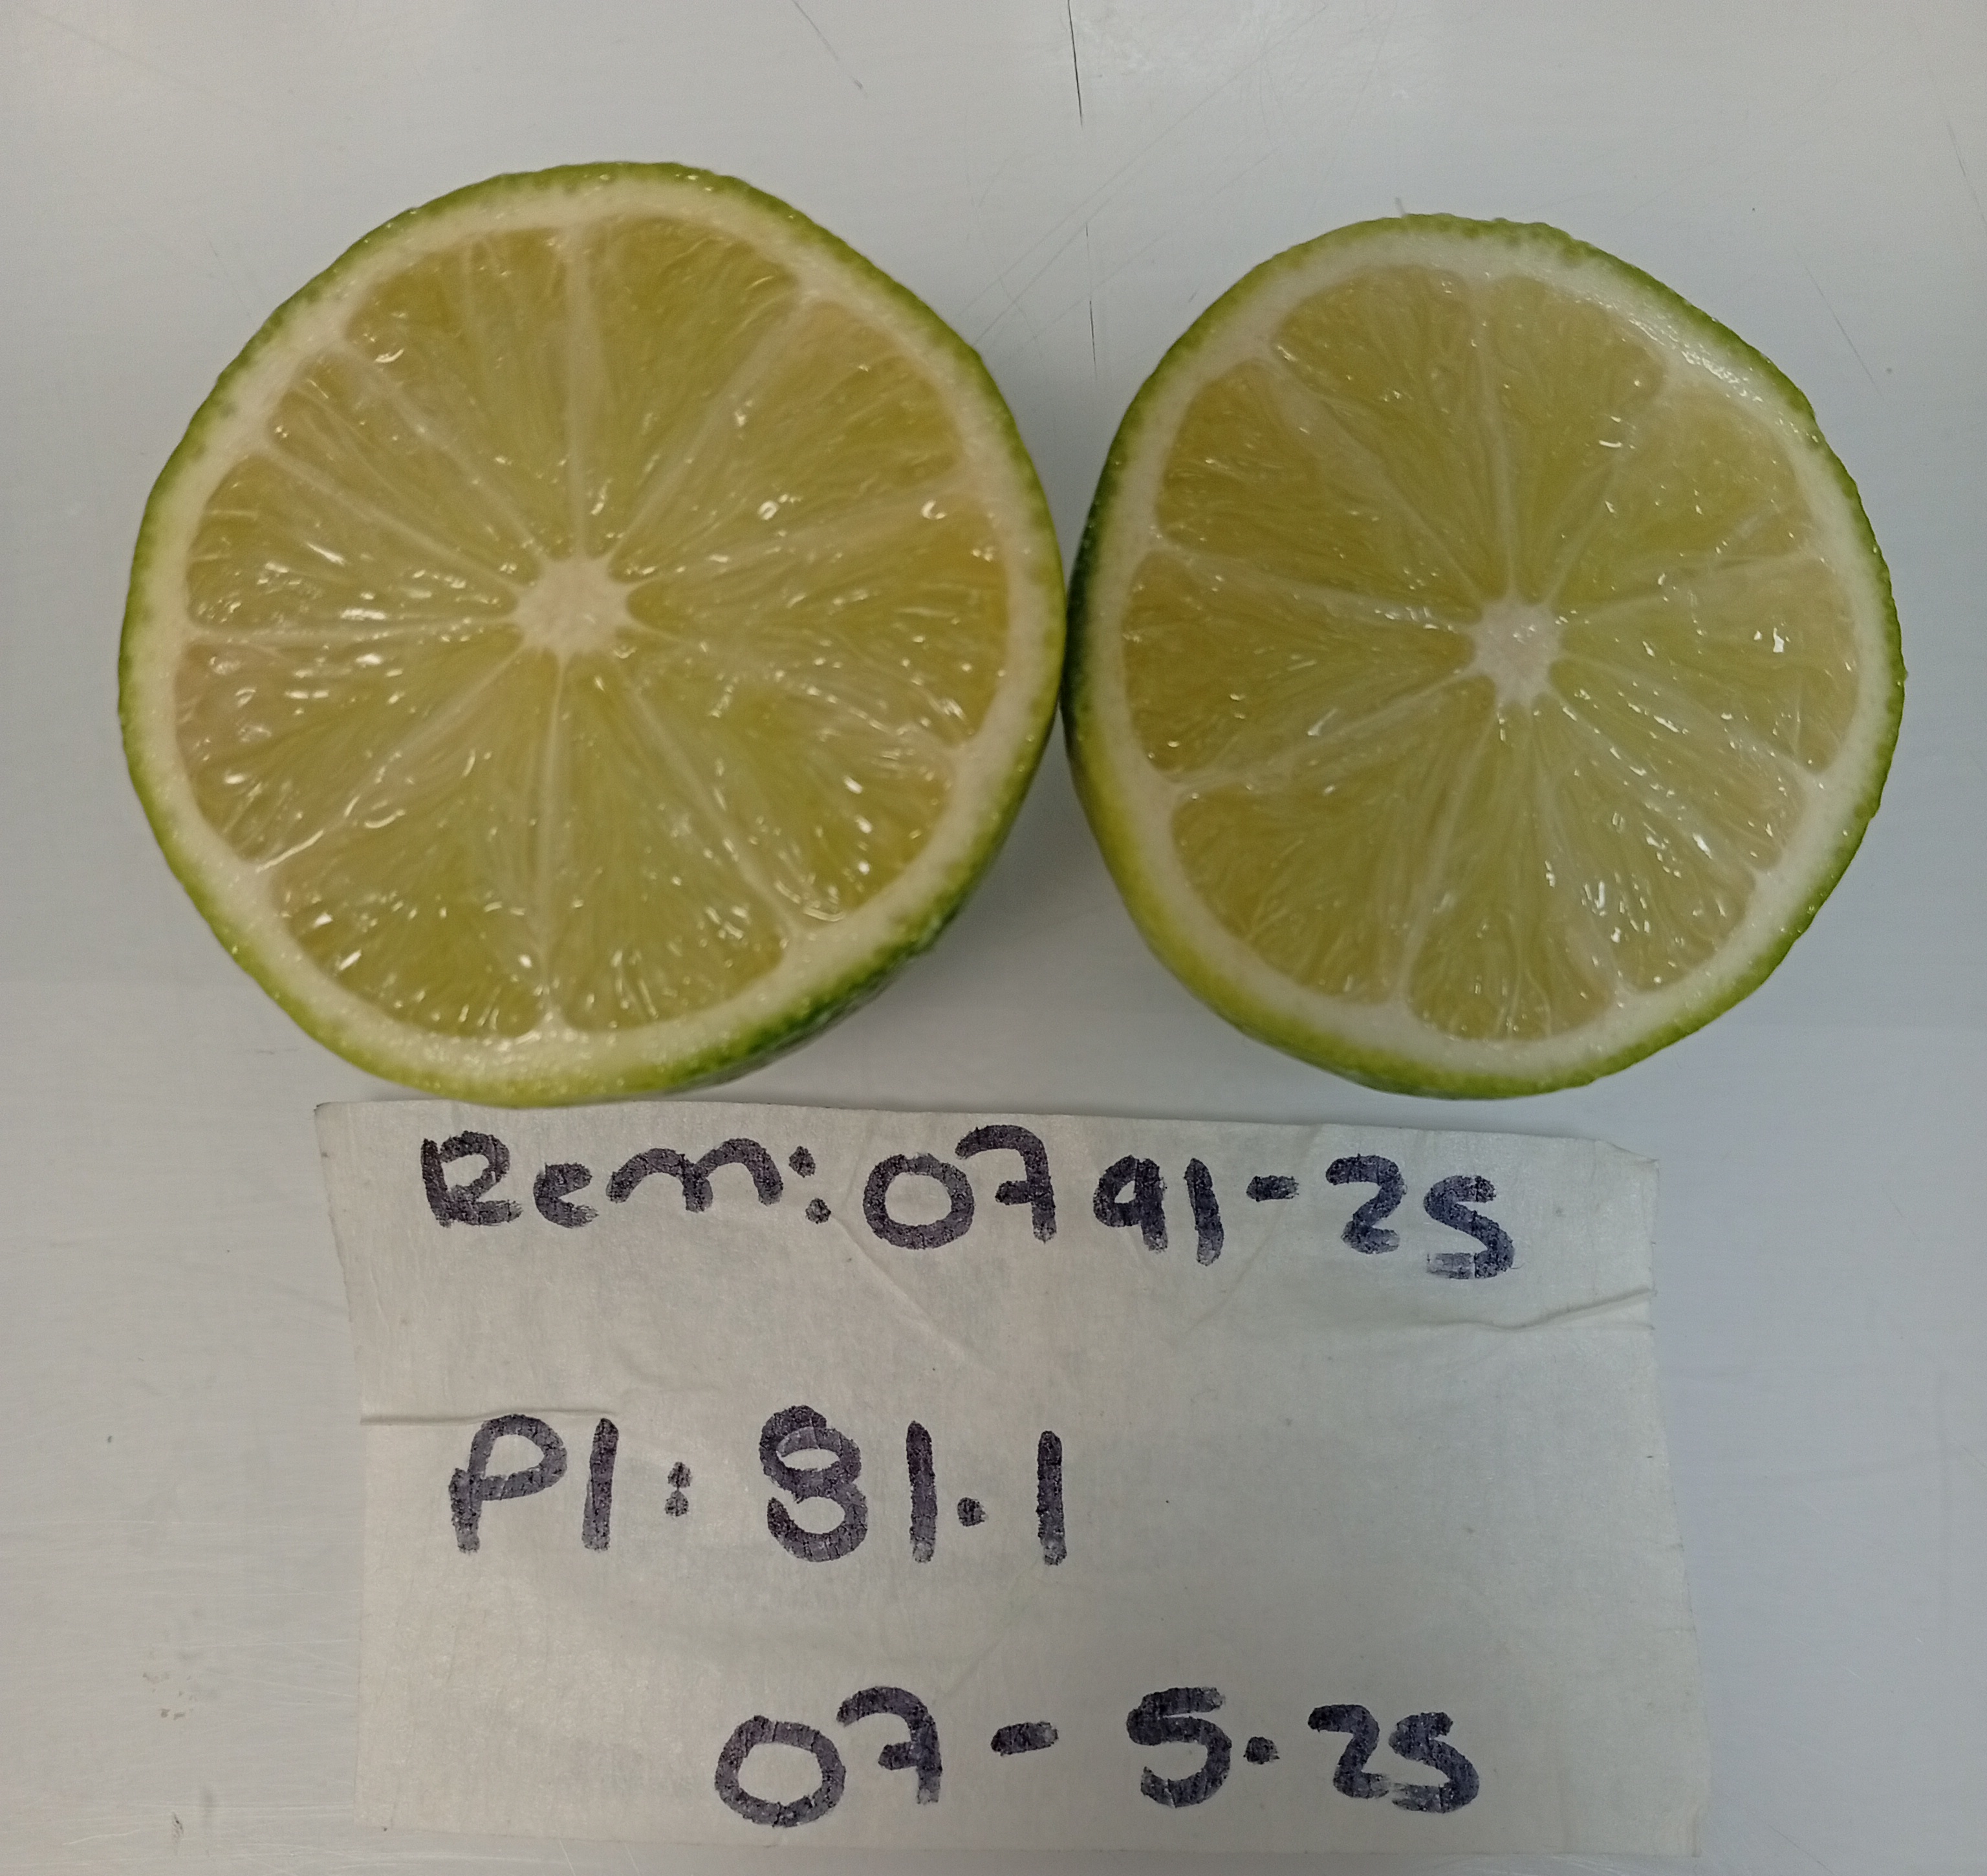 Rem: 0791-25
Pl: 81.1
07-5.25